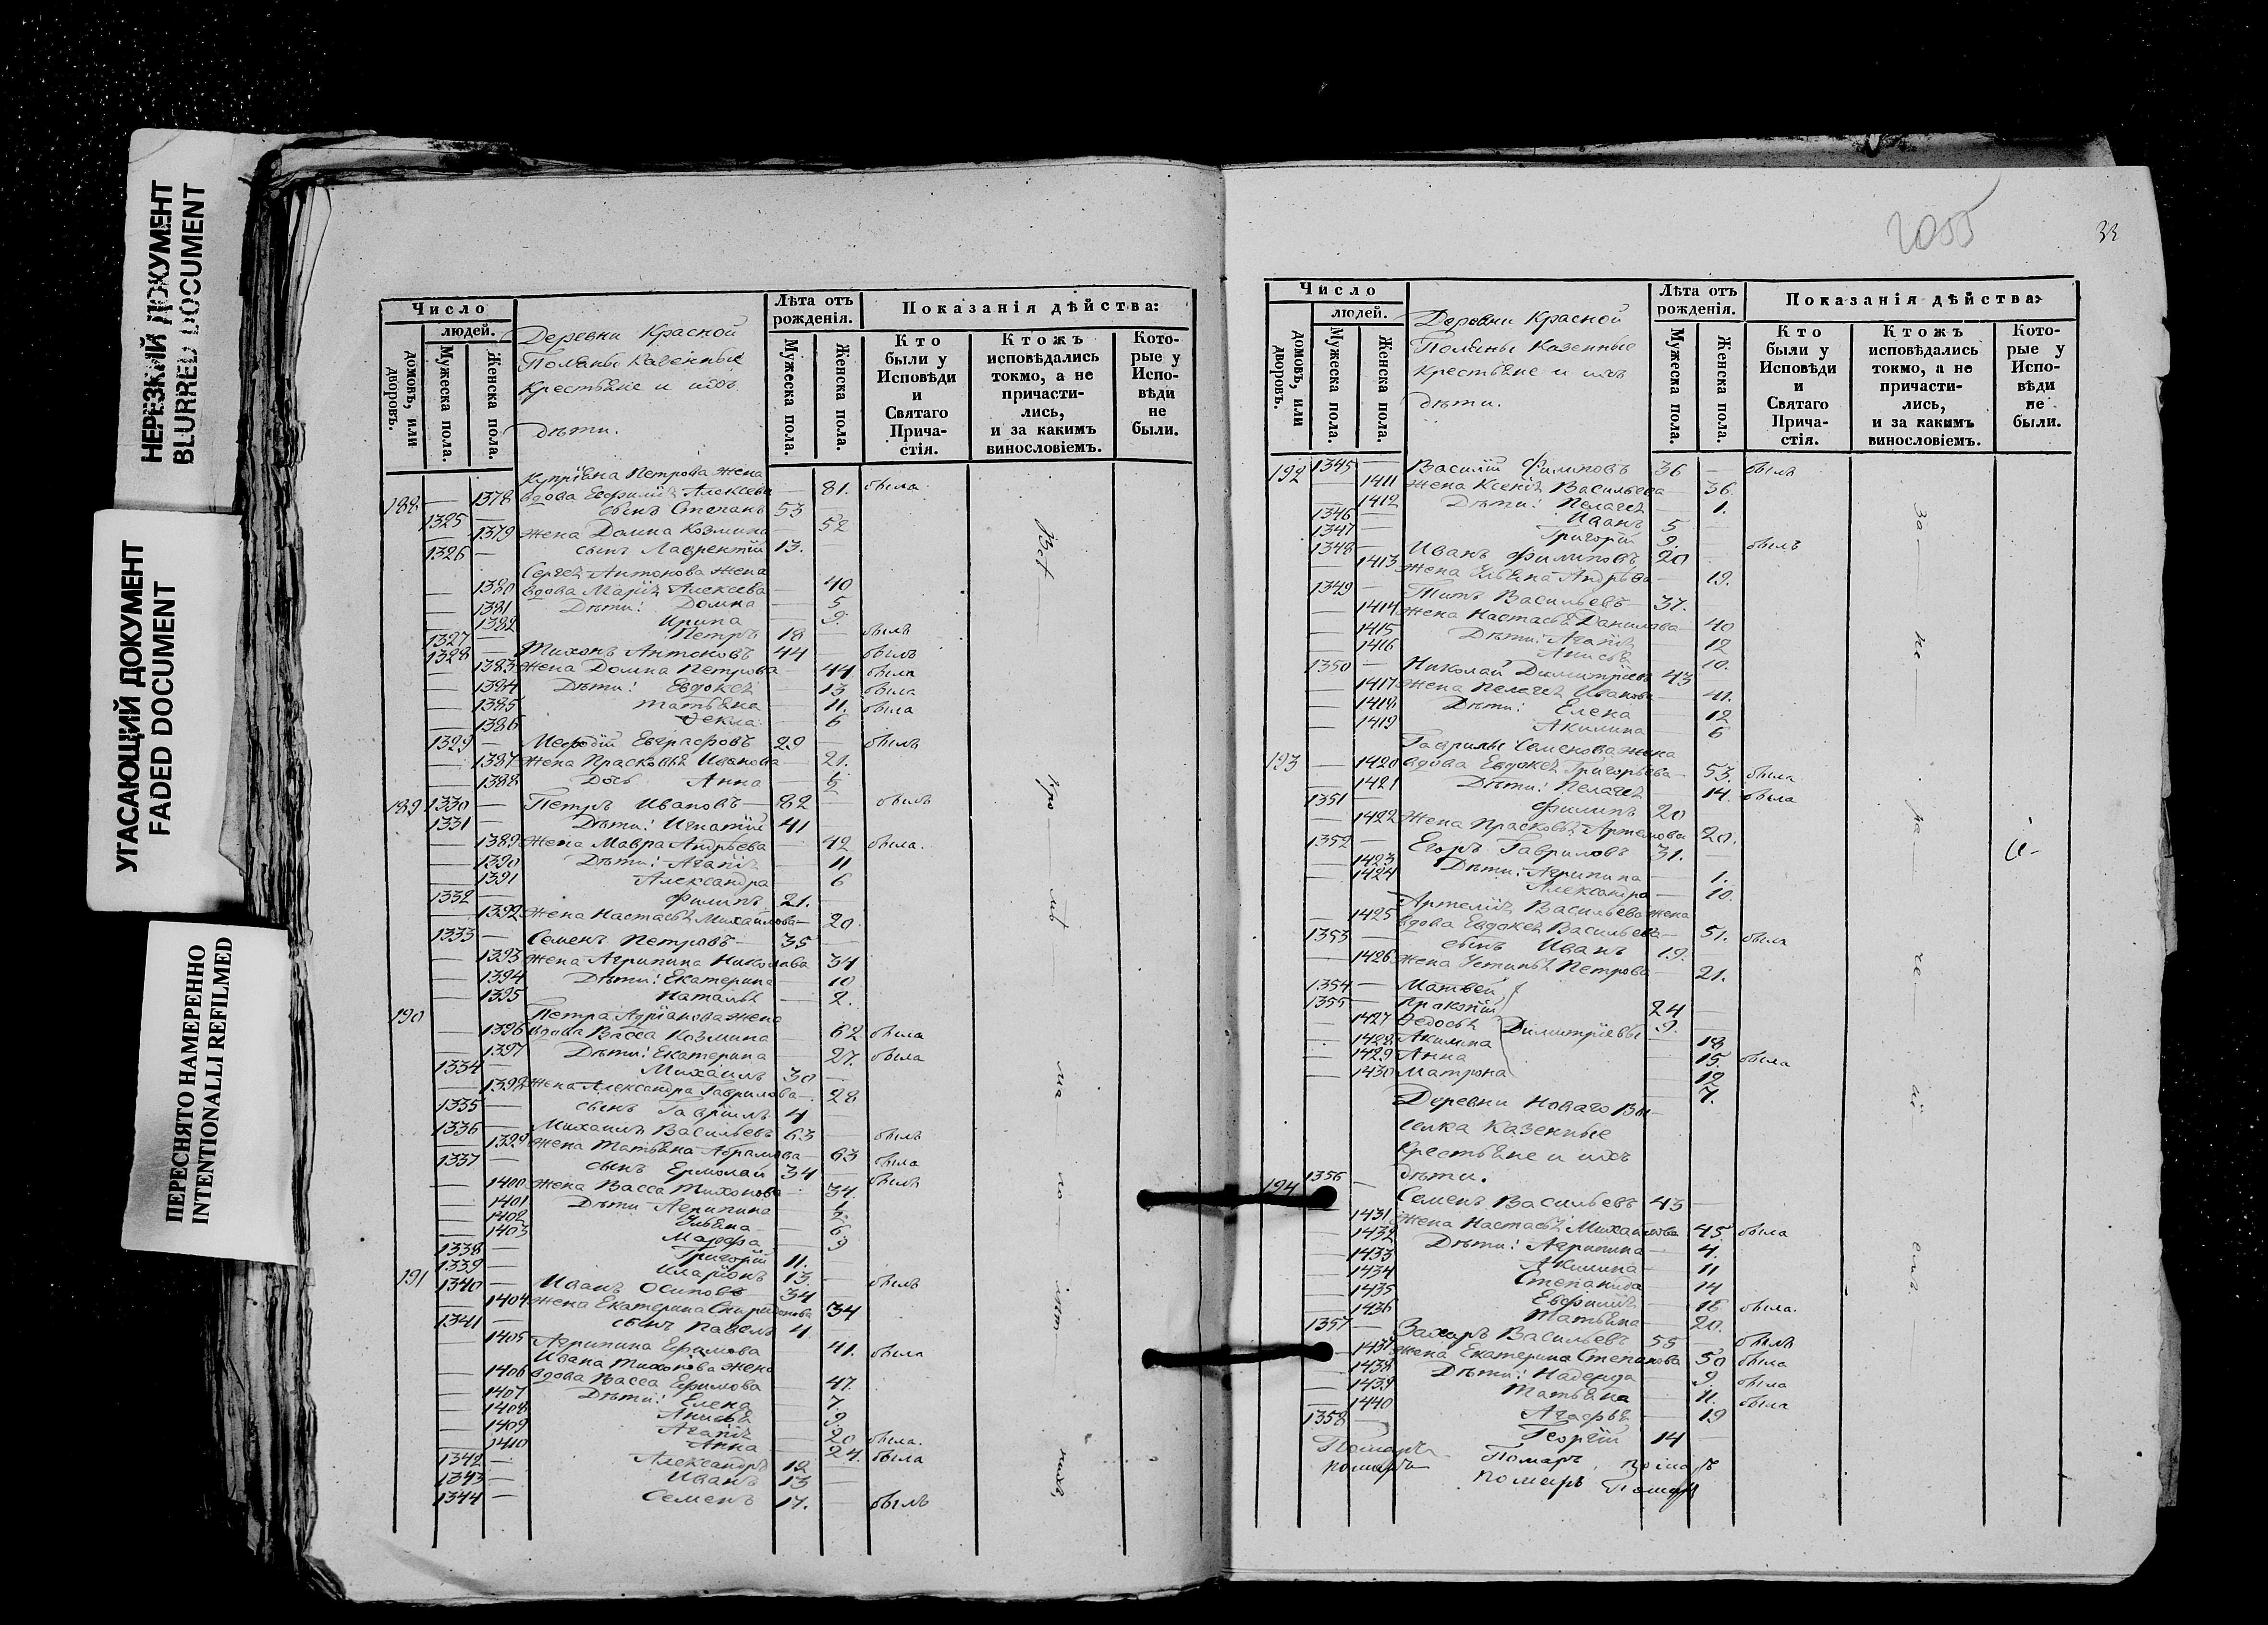 НЕРЕЗКИЙ ДОКУМЕНТ
BLURRED DOCUMENT
УГАСАЮЩИЙ ДОКУМЕНТ
FADED DOCUMENT
ПЕРЕСНЯТО НАМЕРЕННО
INTENTIONALLI REFILMED
Число
людей.
домовъ, или дворовъ.
Мужеска пола.
Женска пола.
Деревни Красной
Поляны Казенные
крестьяне и ихъ
дѣти.
Лѣта отъ рожденія.
Мужеска пола.
Женска пола.
Показанія дѣйства:
Кто были у Исповѣди и Святаго Прича-стія.
Ктожъ исповѣдались токмо, а не причасти-лись, и за какимъ винословіемъ.
Кото-рые у Испо-вѣди не были.
Купріяна Петрова жена
188 — 1378 вдова Евфимія Алексѣева — 81. была
1325 — сынъ Степанъ 53 —
— 1379 жена Домна Козмина — 52
1326 — сынъ Лаврентій 13.
Сергея Антонова жена
— 1380 вдова Марія Алексеева — 40
— 1381 Дѣти: Домна — 5
— 1382 Ирина — 9.
1327 — Петръ 18 — былъ
1328 — Тихонъ Антоновъ 44 — былъ
— 1383 жена Домна Петрова — 44 была
— 1384 Дѣти: Евдокея — 13 была
— 1385 Татьяна — 11. была
— 1386 Фекла — 6
1329 — Мефодій Евграфовъ 29 — былъ
— 1387 жена Прасковья Иванова — 21.
— 1388 Дочь Анна
189 1330 — Петръ Ивановъ — 82 — былъ
1331 — Дѣти: Игнатій 41 —
— 1389 жена Мавра Андрѣева 42 была.
— 1390 Дѣти: Агапія — 11
— 1391 Александра — 6
1332 — Филипъ 21. —
— 1392 жена Настасья Михайлова — 20.
1333 — Семенъ Петровъ — 35 —
— 1393 жена Агрипина Николаева 34
— 1394 Дѣти: Екатерина — 10
— 1395 Наталья — 2.
190 Петра Адріанова жена
— 1396 вдова Васса Козмина — 62 была
— 1397 Дѣти: Екатерина — 27. была
1334 — Михаилъ 30 —
— 1398 жена Александра Гаврилова — 28
1335 — сынъ Гавріилъ 4
1336 — Михаилъ Васильевъ 63 — былъ
— 1399 жена Татьяна Абрамова — 63 была
1337 — сынъ Ермолай 34 — былъ
— 1400 жена Васса Тихонова — 34.
— 1401 Дѣти Агрипина — 1
— 1402 Ульяна — 2.
— 1403 Марфа — 6
1338 — Григорій 9
1339 — Иларіонъ 11.
191 1340 — Иванъ Осиповъ 34 — былъ
— 1404 жена Екатерина Спиридонова 34
1341 — сынъ Павелъ 4
— 1405 Агрипина Ефимова — 41. была
Ивана Тихонова жена
— 1406 вдова Васса Ефимова — 47.
— 1407 Дѣти: Елена — 7.
— 1408 Анисья 9.
— 1409 Агапія 20 была.
— 1410 Анна 24. была
1342 — Александръ 12
1343 — Иванъ 13 —
1344 — Семенъ 17. — былъ
2055
33
Число
людей.
домовъ, или дворовъ.
Мужеска пола.
Женска пола.
Деревни Красной
Поляны Казенные
крестьяне и ихъ
дѣти.
Лѣта отъ рожденія.
Мужеска пола.
Женска пола.
Показанія дѣйства:
Кто были у Исповѣди и Святаго Прича-стія.
Ктожъ исповѣдались токмо, а не причасти-лись, и за какимъ винословіемъ.
Кото-рые у Испо-вѣди не были.
192 1345 — Василій Филиповъ 36 — былъ
— 1411 жена Ксенія Васильева — 36.
— 1412 Дѣти: Пелагея — 1.
1346 — Иванъ 5 —
1347 — Григорій 9. —
1348 — Иванъ Филиповъ 20 былъ
— 1413 жена Ульяна Андрѣева — 19.
1349 — Титъ Васильевъ — 37. —
— 1414 жена Настасья Данилова — 40
— 1415 Дѣти: Агапія — 12
— 1416 Анисья 10.
1350 — Николай Димитріевъ 43
— 1417 жена Пелагея Иванова — 41.
— 1418 Дѣти: Елена — 12
— 1419 Акилина — 6
Гаврилы Семенова жена
193 — 1420 вдова Евдокея Григорьева — 53. была
— 1421 Дѣти: Пелагея — 14. была
1351 — Филипъ 20
— 1422 жена Прасковья Артемова 20.
1352 — Егоръ Гавриловъ 31. —
— 1423 Дѣти: Агрипина — 1.
— 1424 Александра — 10.
Артемія Васильева жена
— 1425 вдова Евдокея Васильева — 51. была
1353 — сынъ Иванъ 19. —
— 1426 жена Устинья Петрова — 21.
1354 — Матвей
1355 — 24 —
— 1427 Федосья Димитріевы 9. —
— 1428 Акилина 18
— 1429 Анна 15. была
— 1430 Матрона 12
7.
Деревни Новаго Вы-
селка Казенные
крестьяне и ихъ
дѣти.
194 1356 — Семенъ Васильевъ 43 —
— 1431 жена Настасья Михайлова 45 была
— 1432 Дѣти: Агрипина — 4.
— 1433 Акилина — 11
— 1434 Степанида 14
— 1435 Евфимія 16 была.
— 1436 Татьяна 20.
1357 — Захаръ Васильевъ 55 — былъ
— 1437 жена Екатерина Степанова 50 была
— 1438 Дѣти: Надежда — 9. была
— 1439 Татьяна — 11. была
— 1440 Агафья — 19
1358 — Георгій 14 —
Помаръ Помаръ
помаръ помаръ Помаръ